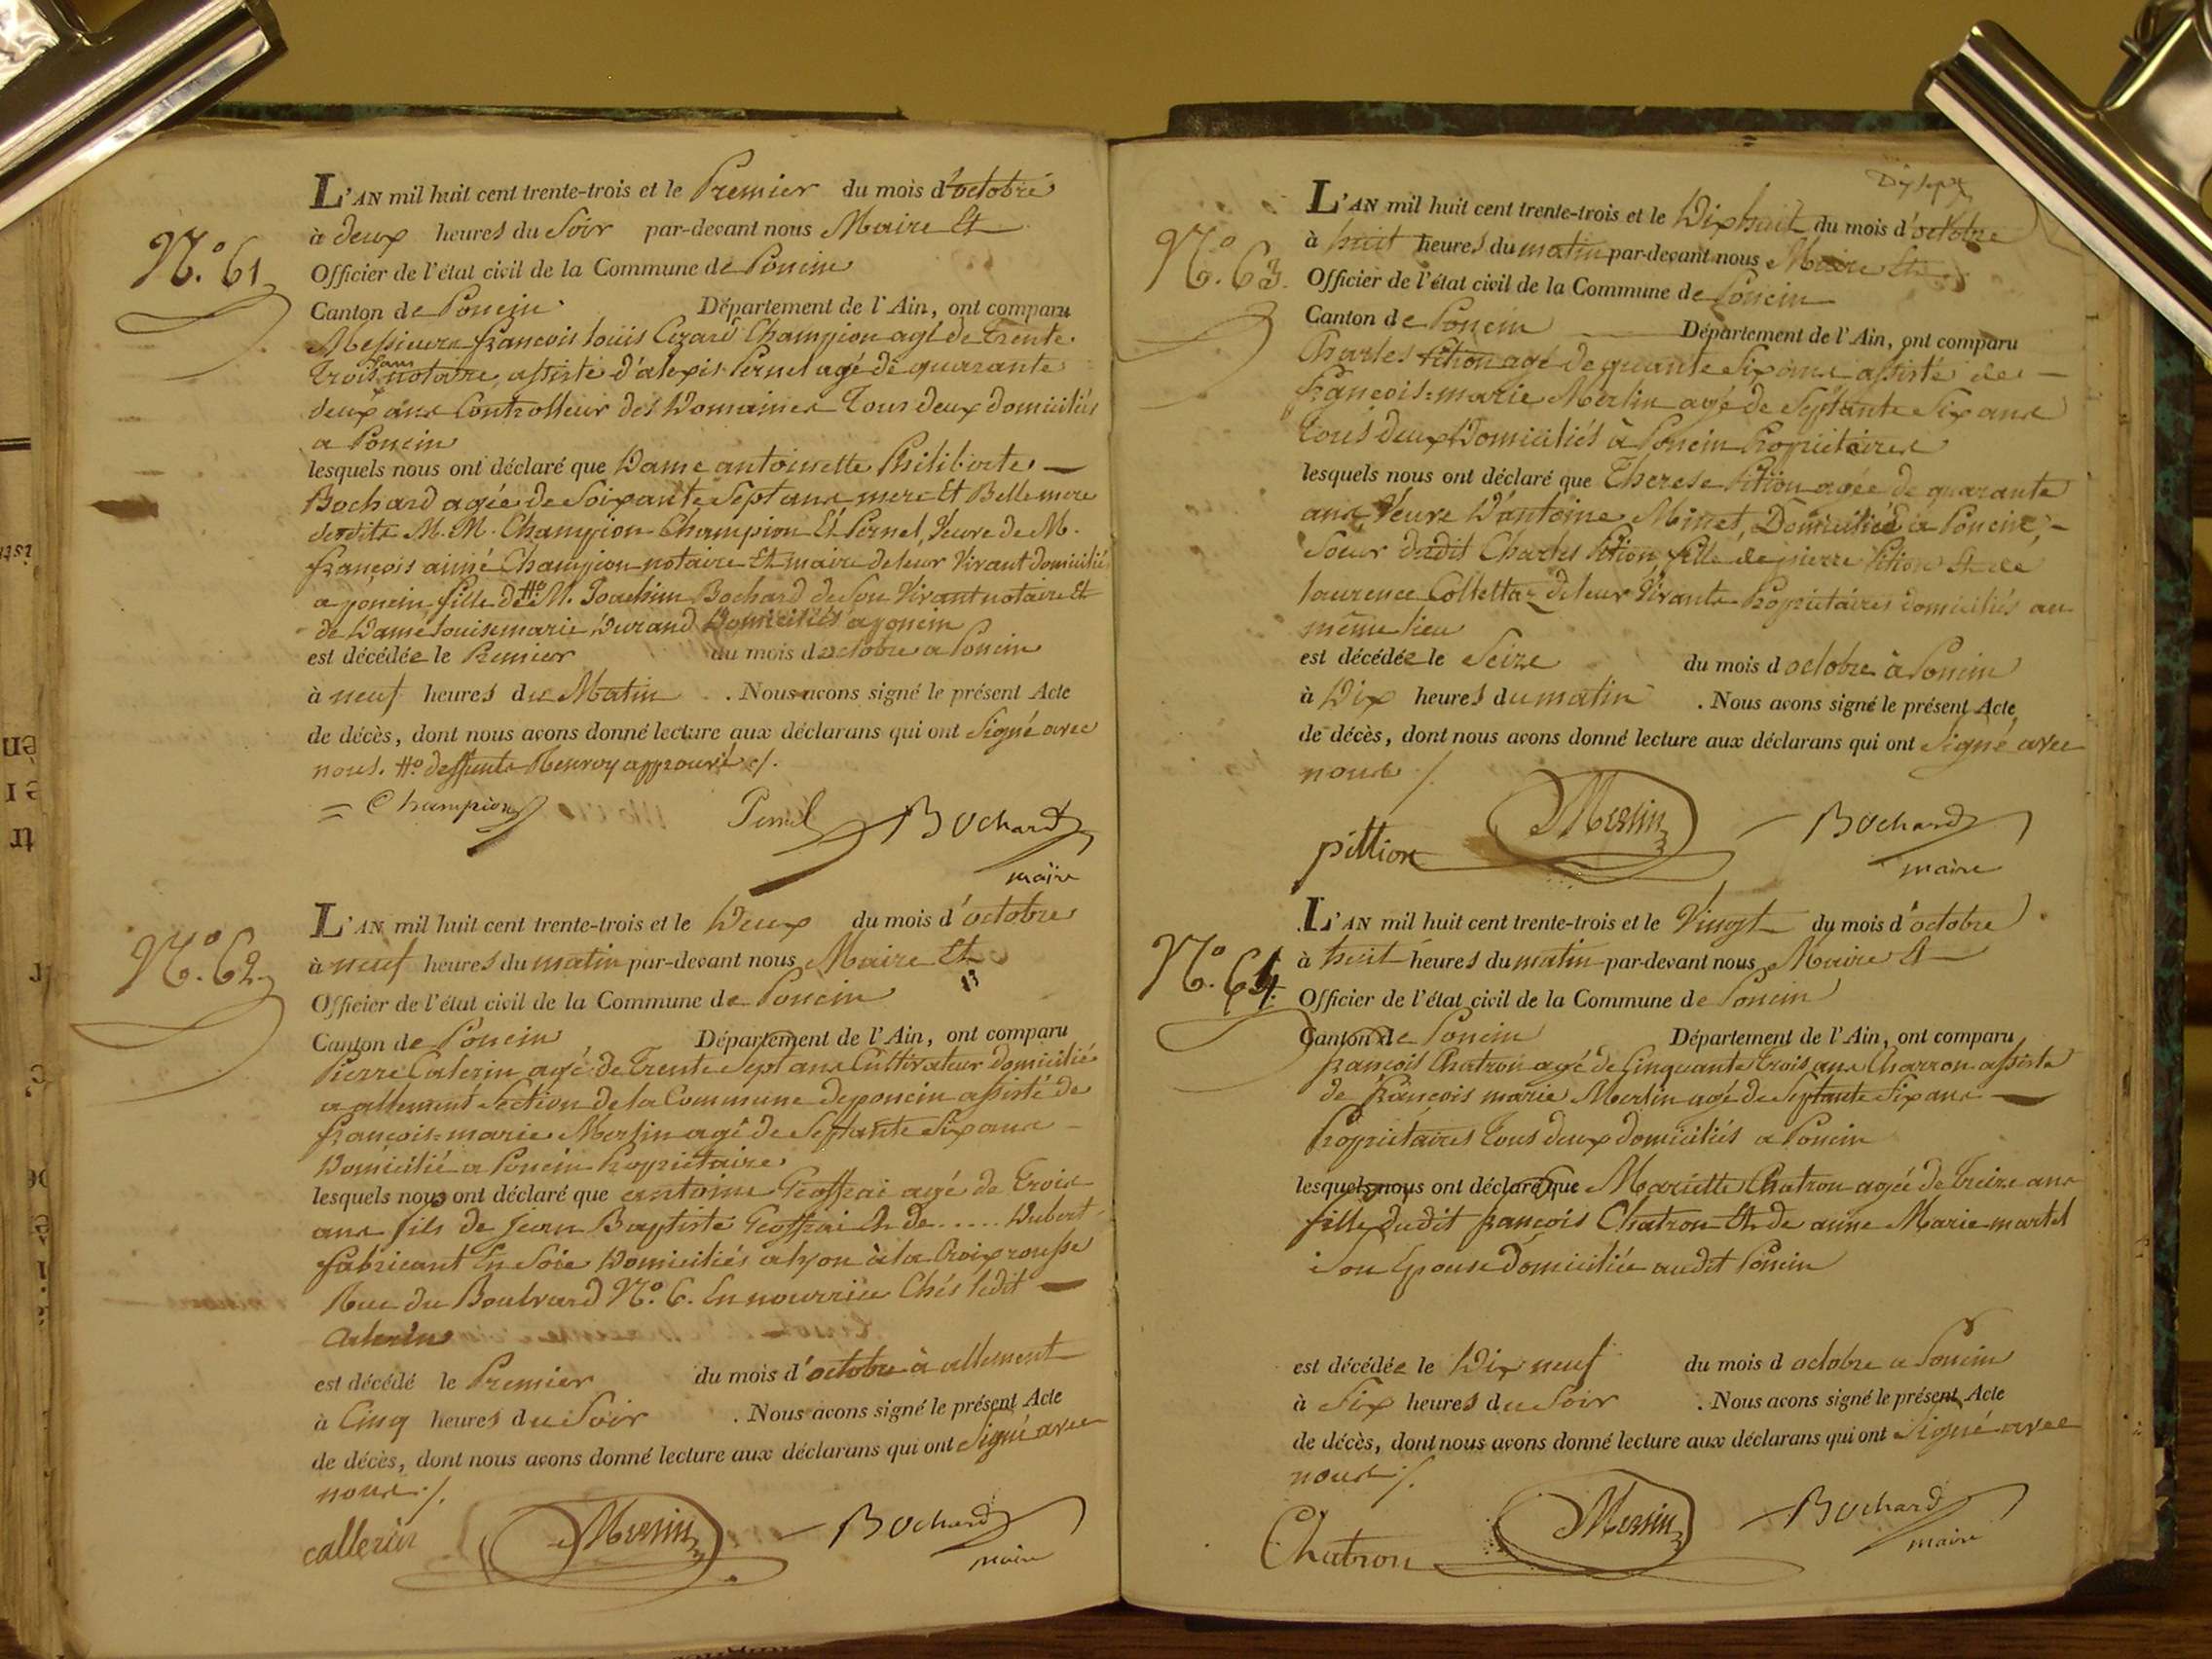 N.° 61
L'AN mil huit cent trente-trois et le Premier du mois d'octobre
à deux heures du Soir par-devant nous Maire Et
Officier de l'état civil de la Commune de Poncin
Canton de Poncin Département de l'Ain, ont comparu
Messieurs françois Louis Cezard Champion agé de Trente
ans
Trois notaire, assisté d'alexis Pernel agé de quarante
deux ans Controlleur des Domaines Tous deux domiciliés
a Poncin
lesquels nous ont déclaré que Dame antoinette Philiberte
Bochard agée de Soixante Sept ans mere Et Belle mere
desdits M. M. Champion Champion Et Pernel, Veuve de M.
françois aimé Champion notaire Et maire de leur Vivant domiciliés
a poncin fille de M. Joachim Bochard de Son Vivant notaire Et
de Dame Louise marie Durand Domiciliés a poncin
est décédée le Premier du mois d octobre a Poncin
à neuf heures du Matin . Nous avons signé le présent Acte
de décès, dont nous avons donné lecture aux déclarans qui ont Signé avec
nous. #° deffunte Renvoy approuvé ./.
= Champion Pernel Bochard
maire
N.° 62
L'AN mil huit cent trente-trois et le Deux du mois d'octobre
à neuf heures du matin par-devant nous Maire Et
Officier de l'état civil de la Commune de Poncin
Canton de Poncin Département de l'Ain, ont comparu
Pierre Calerin agé de Trente Sept ans Cultivateur domicilié
a allement Section de la Commune de poncin assisté de
françois-marie Merlin agé de Septante Six ans
Domicilié a Poncin Propriétaire
lesquels nous ont déclaré que antoine Geoffrai agé de Trois
ans fils de Jean Baptiste Geoffrai Et de ..... Dubert
fabricant En Soie Domiciliés a lyon à la Croix rousse
Rue du Boulvard N.° 6. En nourrice Chés ledit
Calerin
est décédé le Premier du mois d'octobre à allement
à Cinq heures du Soir . Nous avons signé le présent Acte
de décès, dont nous avons donné lecture aux déclarans qui ont Signé avec
nous ./.
callerin Merlin Bochard
maire
Dix sept
N.° 63.
L'AN mil huit cent trente-trois et le Dix huit du mois d'octobre
à huit heures du matin par-devant nous Maire Et
Officier de l'état civil de la Commune de Poncin
Canton de Poncin Département de l'Ain, ont comparu
Charles Pition agé de quante Six ans assisté de
françois-marie Merlin agé de Septante Six ans
Tous deux Domiciliés à Poncin Propriétaires
lesquels nous ont déclaré que Therese Pition agée de quarante
ans Veuve D'antoine Minet, Domiciliée à Poncin,
Soeur dudit Charles Pition, fille de pierre Pition Et de
laurence Collettaz de leur Vivants Propriétaires domiciliés au
même lieu
est décédée le Seize du mois d octobre à Poncin
à Dix heures du matin . Nous avons signé le présent Acte
de décès, dont nous avons donné lecture aux déclarans qui ont Signé avec
nous ./.
pittion Merlin Bochard
maire
N.° 64.
L'AN mil huit cent trente-trois et le Vingt du mois d'octobre
à huit heures du matin par-devant nous Maire Et
Officier de l'état civil de la Commune de Poncin
Canton de Poncin Département de l'Ain, ont comparu
françois Chatron agé de Cinquante trois ans Charron assisté
de françois marie Merlin agé de Septante Six ans
Propriétaires Tous deux domiciliés a Poncin
lesquels nous ont déclaré que Mariette Chatron agée de Treize ans
fille dudit françois Chatron Et de anne Marie martel
Son Epouse domiciliée audit Poncin
est décédée le Dix neuf du mois d octobre a Poncin
à Six heures du Soir . Nous avons signé le présent Acte
de décès, dont nous avons donné lecture aux déclarans qui ont Signé avec
nous ./.
Chatron Merlin Bochard
maire